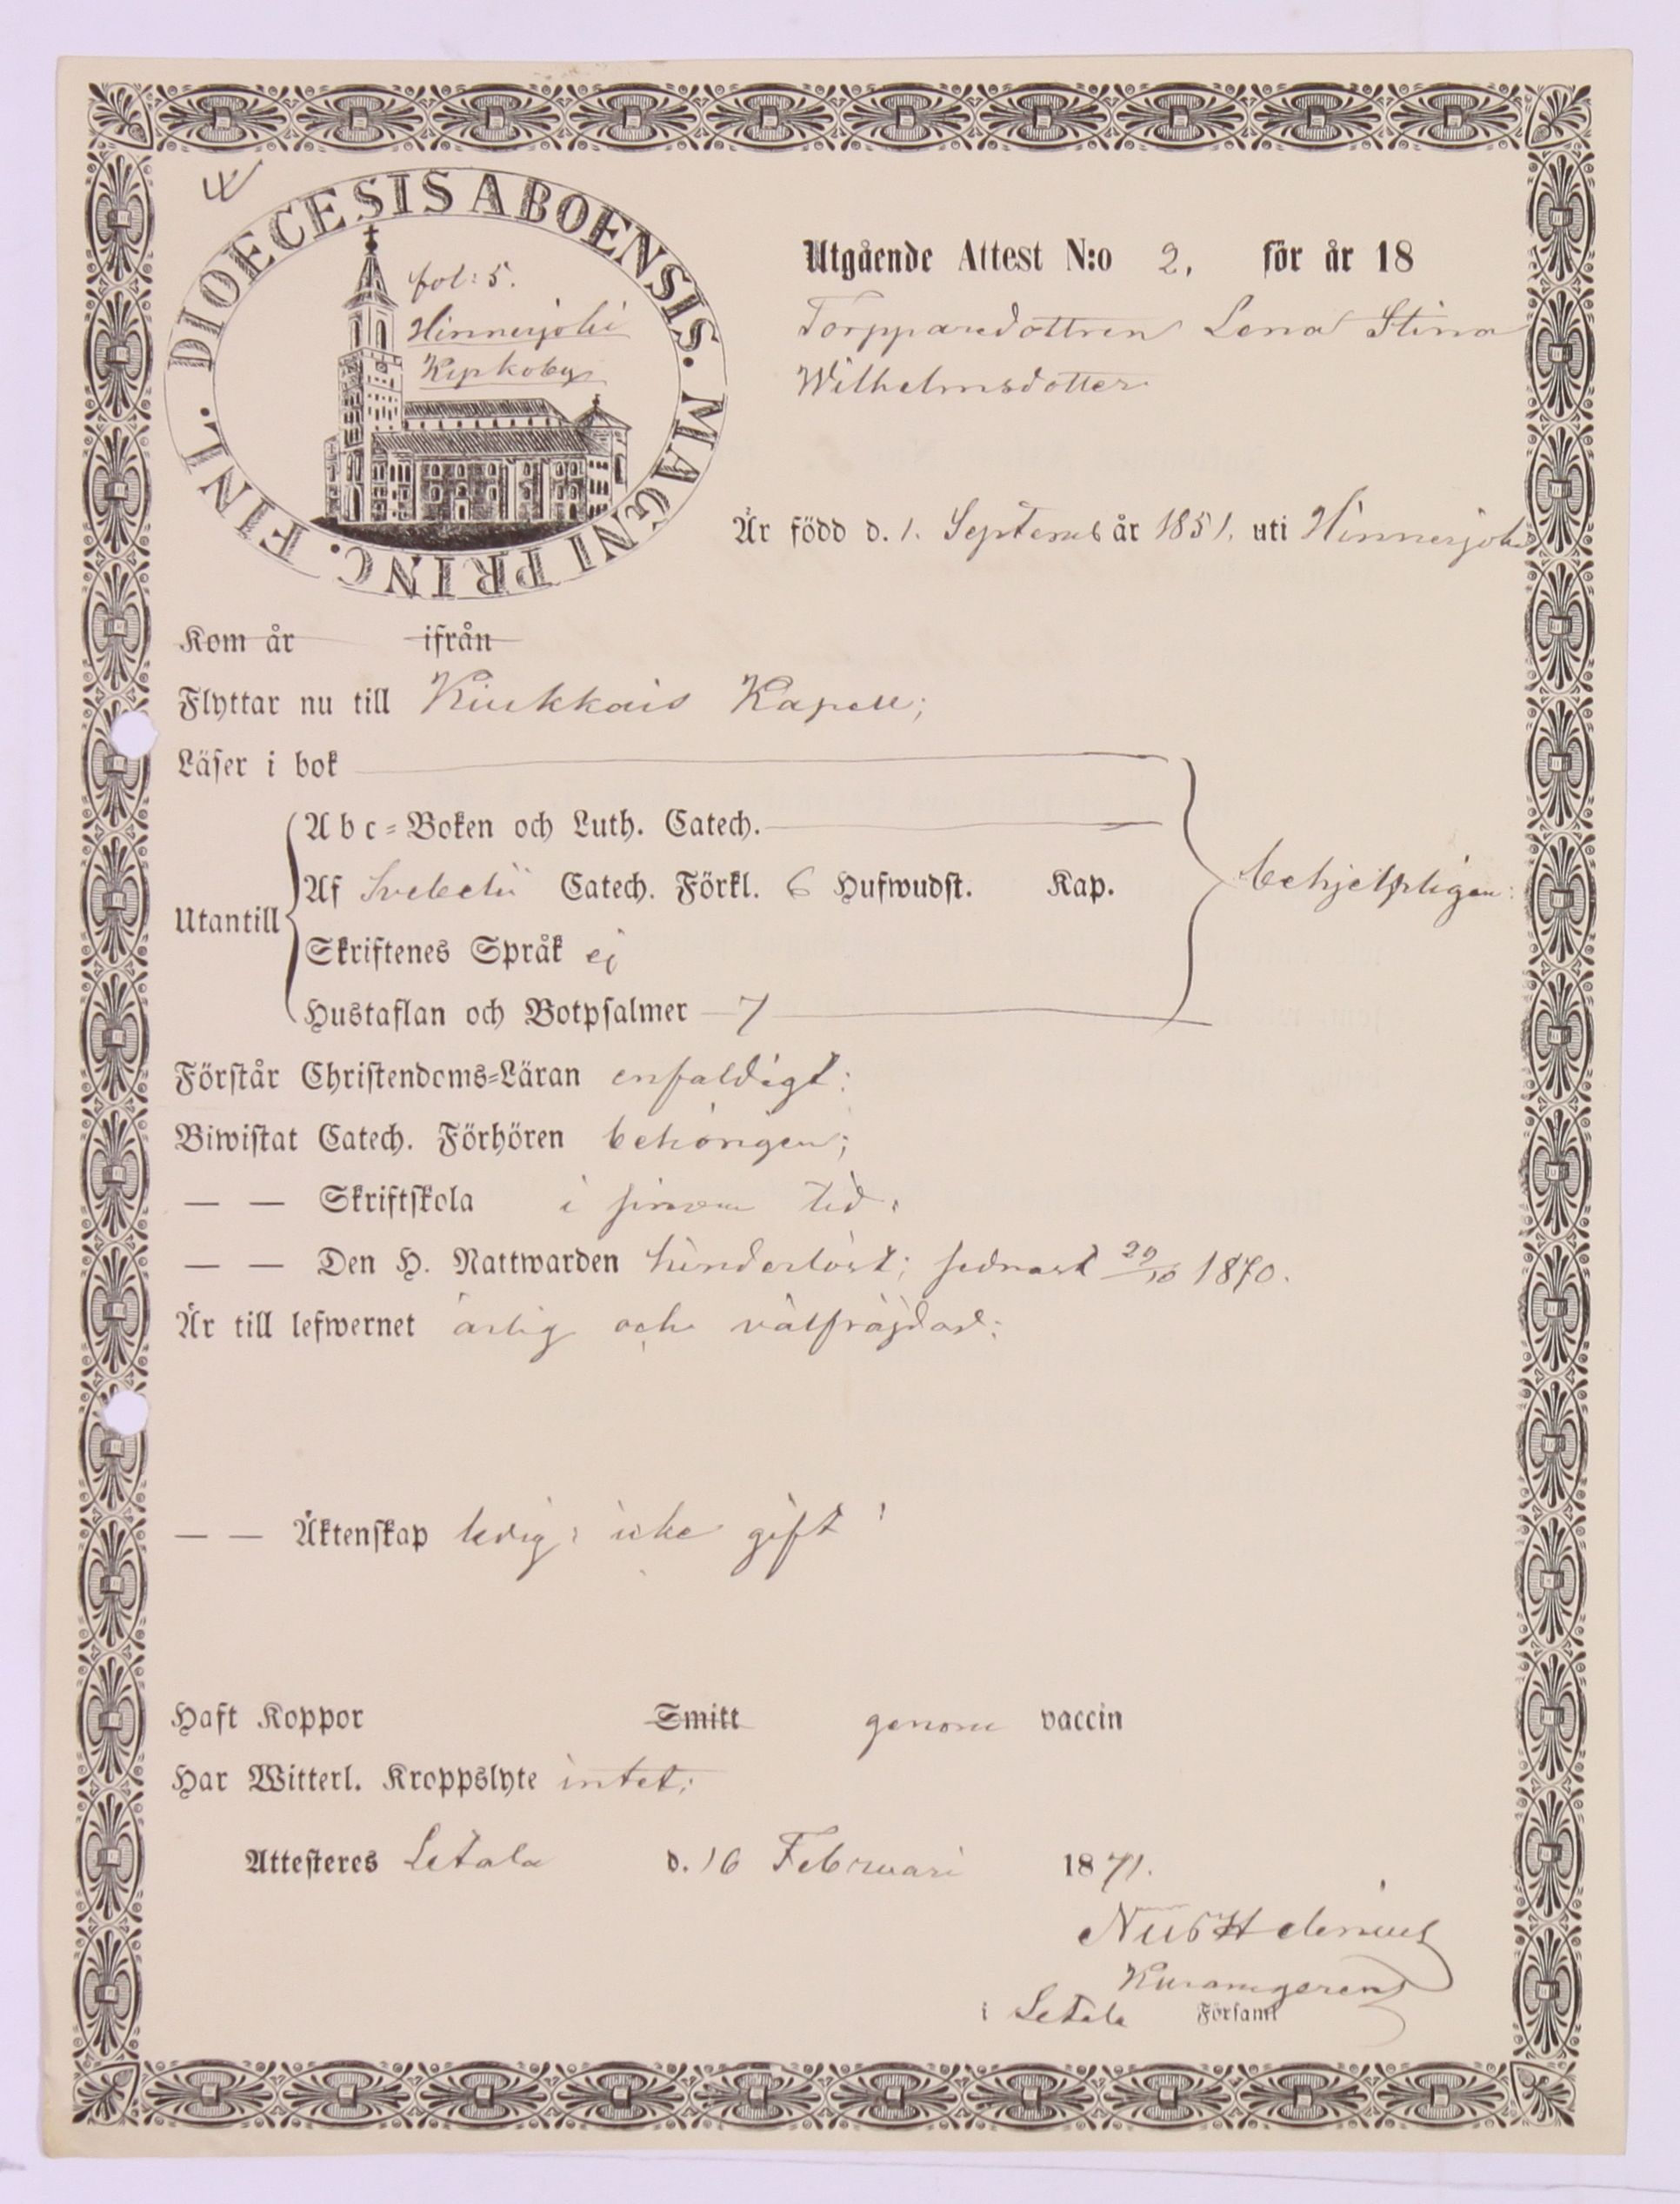 DIOECESIS ABOENSIS. MAGNI PRINC. FINL.
fol: 5.
Hinnerjoki
Kyrkoby
Utgående Attest N:o 2. för år 18
Torpparedottren Lena Stina
Wilhelmsdotter
Är född d. 1. Septemb år 1851. uti Hinnerjoki
Kom år ifrån
Flyttar nu till Kiukkais Kapell;
Läser i bok
Abc=Boken och Luth. Catech.
Utantill
Af Svebelii Catech. Förkl. 6 Hufwudst. Kap.
behjelpligen:
Skriftenes Språk ej
Hustaflan och Botpsalmer 7
Förstår Christendoms=Läran enfaldigt:
Biwistat Catech. Förhören behörigen;
— — Skriftskola i sinom tid:
— — Den H. Nattwarden hinderlöst; sednast 29/10 1870.
Är till lefwernet ärlig och välfräjdad:
— — Äktenskap ledig: icke gift
Haft Koppor Smitt genom vaccin
Har Witterl. Kroppslyte intet:
Attesteres Letala d. 16 Februari 1871.
Nils Helenius
i Letala Församl